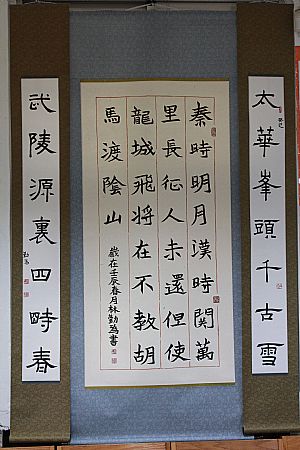 太華峯頭千古雪
秦時明月漢時關萬
里長征人未還但使
龍城飛将在不教胡
馬渡陰山
歲在壬辰春月林勤為書
武陵源裏四時春